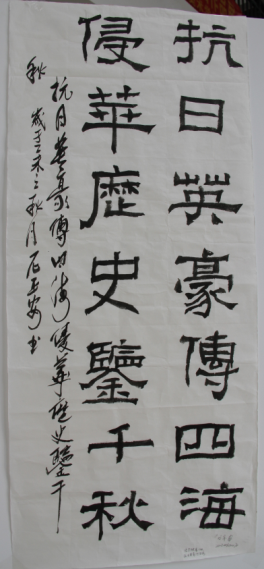 抗日英豪傳四海
侵華歷史鑒千秋
抗日英豪傳四海侵華歷史鑒千
秋 歲乙未之秋月 石玉安书